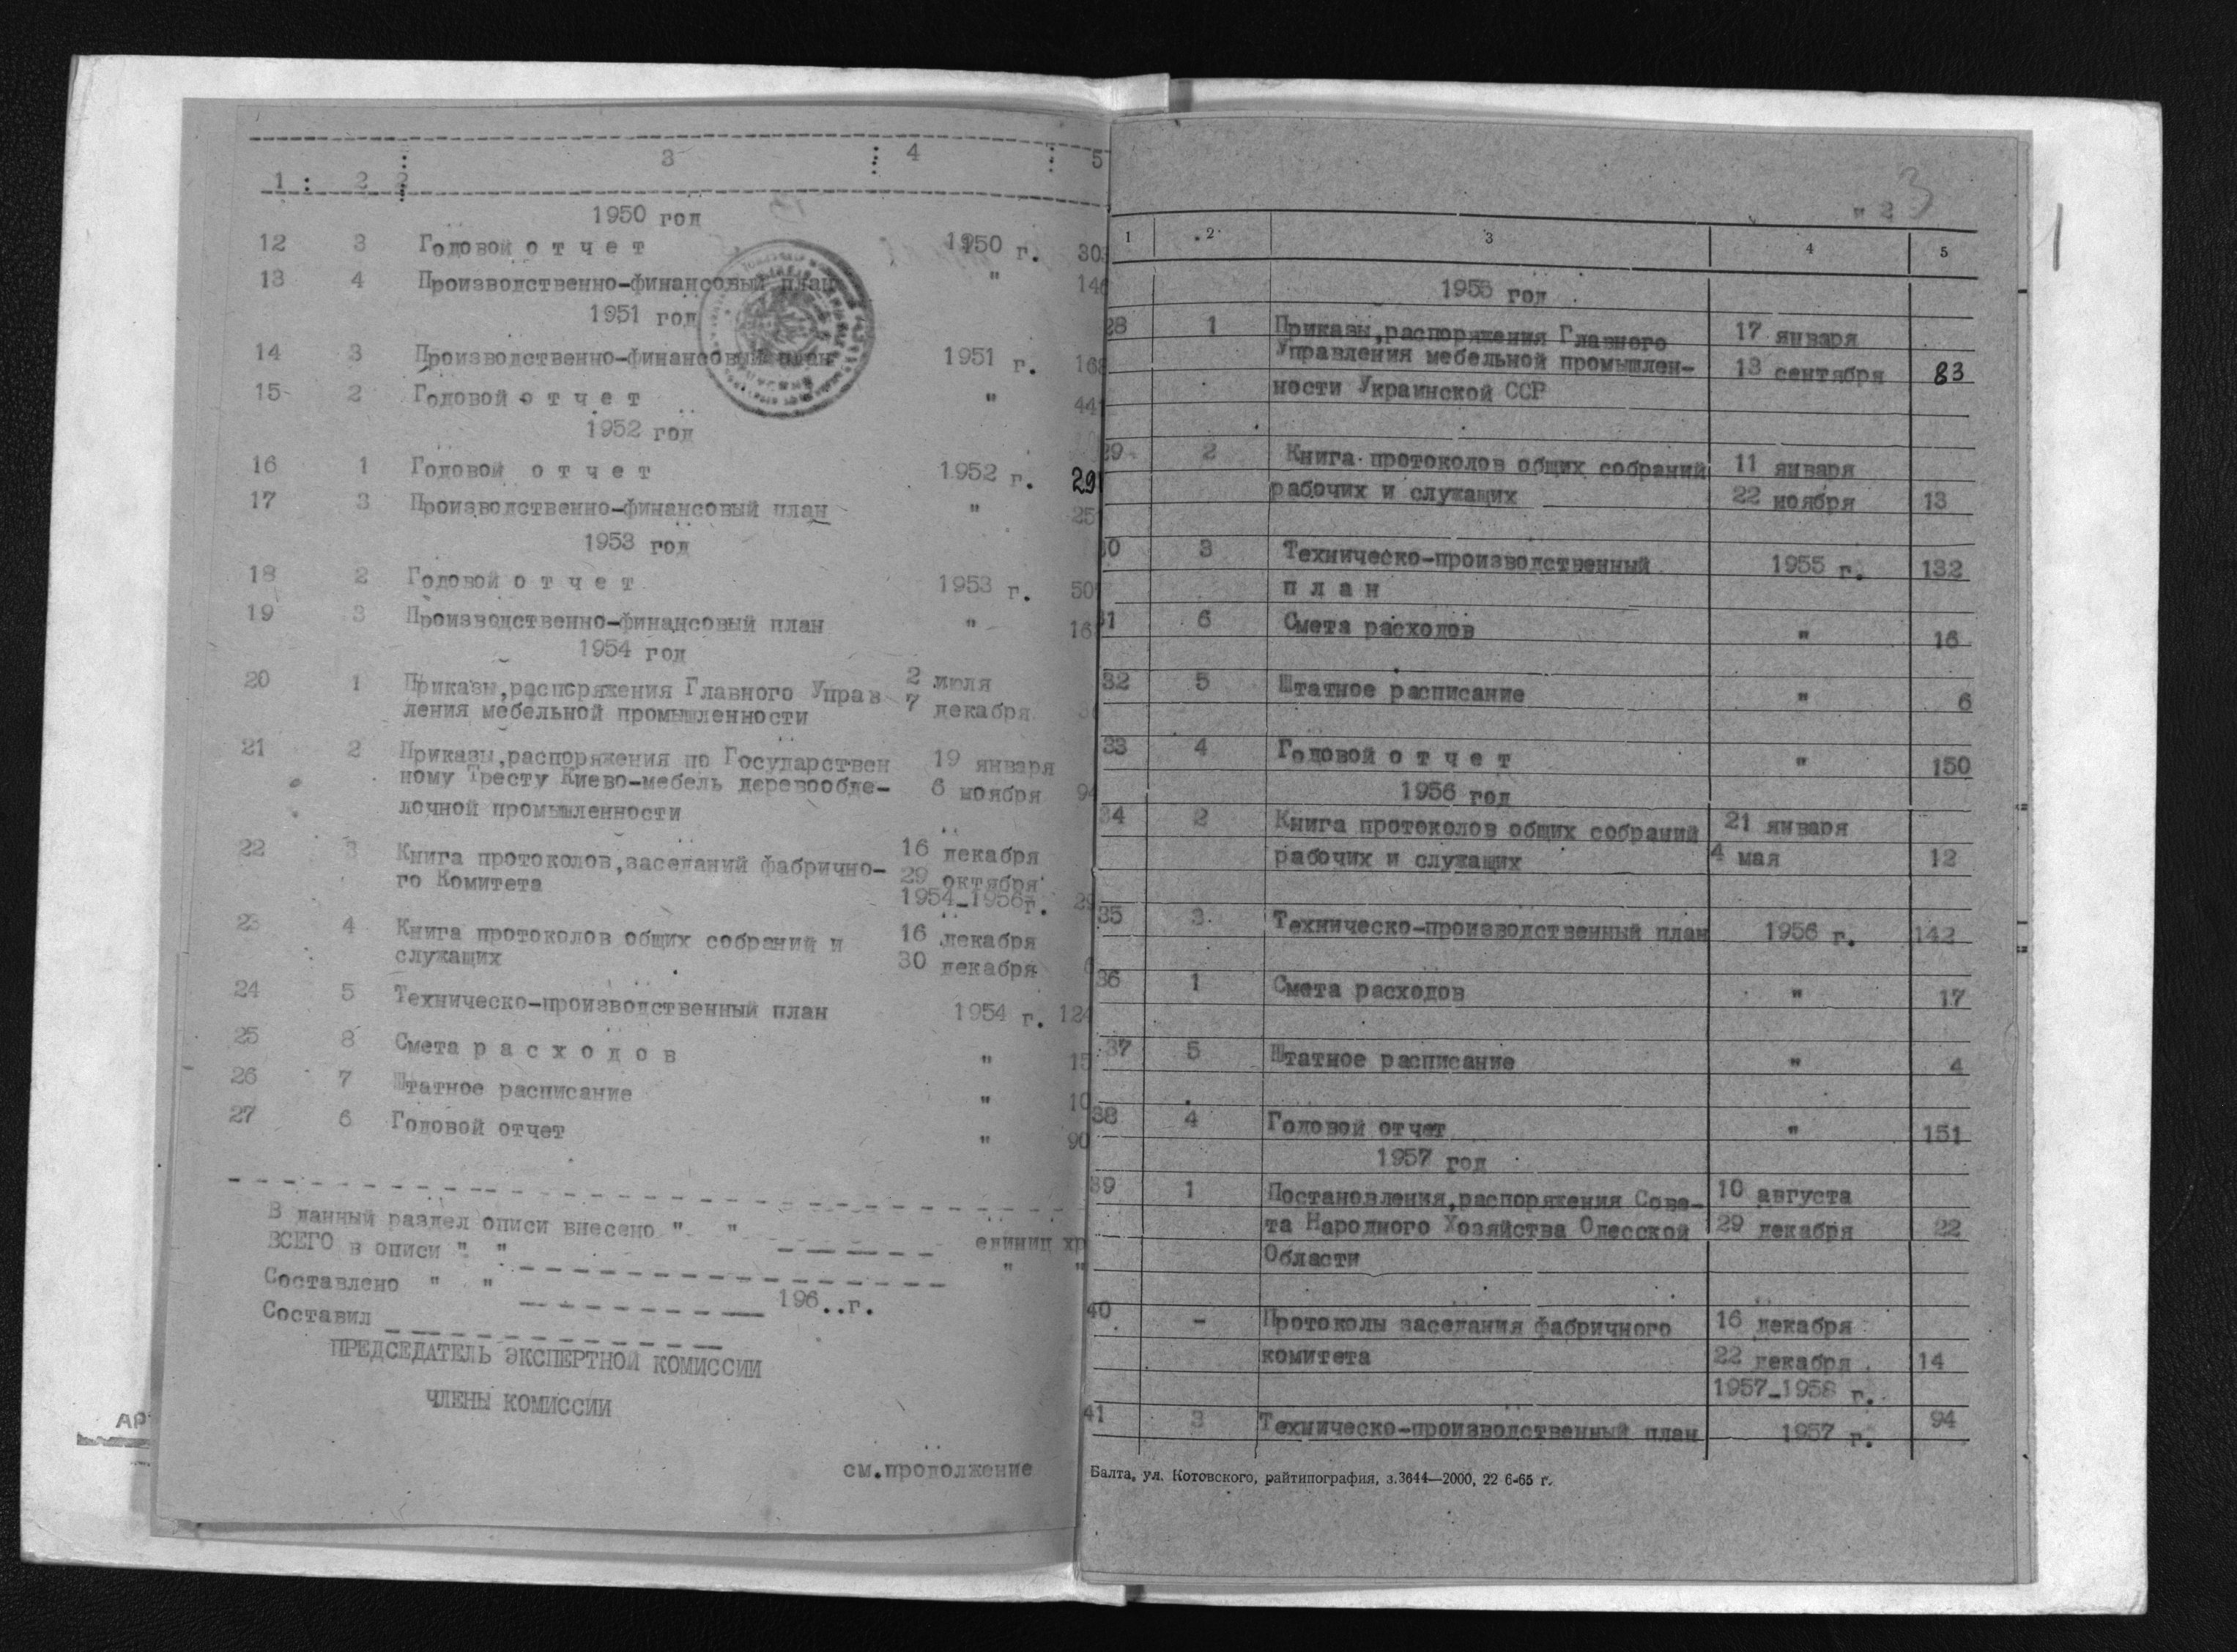 1 : 2 3 4 5
1950 год
12 3 Годовой о т ч е т 1950 г. 30
13 4 Производственно-финансовый план " 14
1951 год
14 3 Производственно-финансовый план 1951 г. 16
15 2 Годовой о т ч е т " 44
1952 год
16 1 Годовой о т ч е т 1952 г. 29
17 3 Производственно-финансовый план " 25
1953 год
18 2 Годовой о т ч е т 1953 г. 50
19 3 Производственно-финансовый план " 16
1954 год
20 1 Приказы,распоряжения Главного Управ 2 июля
ления мебельной промышленности 7 декабря
21 2 Приказы,распоряжения по Государствен 19 января
ному Тресту Киево-мебель деревообде- 6 ноября 94
лочной промышленности
22 3 Книга протоколов,заседаний фабрично- 16 декабря
го Комитета 29 октября
1954-1956г. 29
23 4 Книга протоколов общих собраний и 16 декабря
служащих 30 декабря
24 5 Техническо-производственный план 1954 г. 124
25 8 Смета р а с х о д о в " 15
26 7 Штатное расписание " 10
27 6 Годовой отчет " 90
В данный раздел описи внесено " " единиц хр
ВСЕГО в описи " " " "
Составлено " " 196..г.
Составил
ПРЕДСЕДАТЕЛЬ ЭКСПЕРТНОЙ КОМИССИИ
ЧЛЕНЫ КОМИССИИ
см.продолжение
" 2 3
1 2 3 4 5
1955 год
28 1 Приказы,распоряжения Главного 17 января
Управления мебельной промышлен- 13 сентября 83
ности Украинской ССР
29 2 Книга протоколов общих собраний 11 января
рабочих и служащих 22 ноября 13
30 3 Техническо-производственный 1955 г. 132
п л а н
31 6 Смета расходов " 16
32 5 Штатное расписание " 6
33 4 Годовой о т ч е т " 150
1956 год
34 2 Книга протоколов общих собраний 21 января
рабочих и служащих 4 мая 12
35 3 Техническо-производственный план 1956 г. 142
36 1 Смета расходов " 17
37 5 Штатное расписание " 4
38 4 Годовой отчет " 151
1957 год
39 1 Постановления,распоряжения Сове- 10 августа
та Народного Хозяйства Одесской 29 декабря 22
Области
40 - Протоколы заседания фабричного 16 декабря
комитета 22 декабря 14
1957-1958 г.
41 3 Техническо-производственный план 1957 г. 94
Балта, ул. Котовского, райтипография, з.3644—2000, 22 6-65 г.